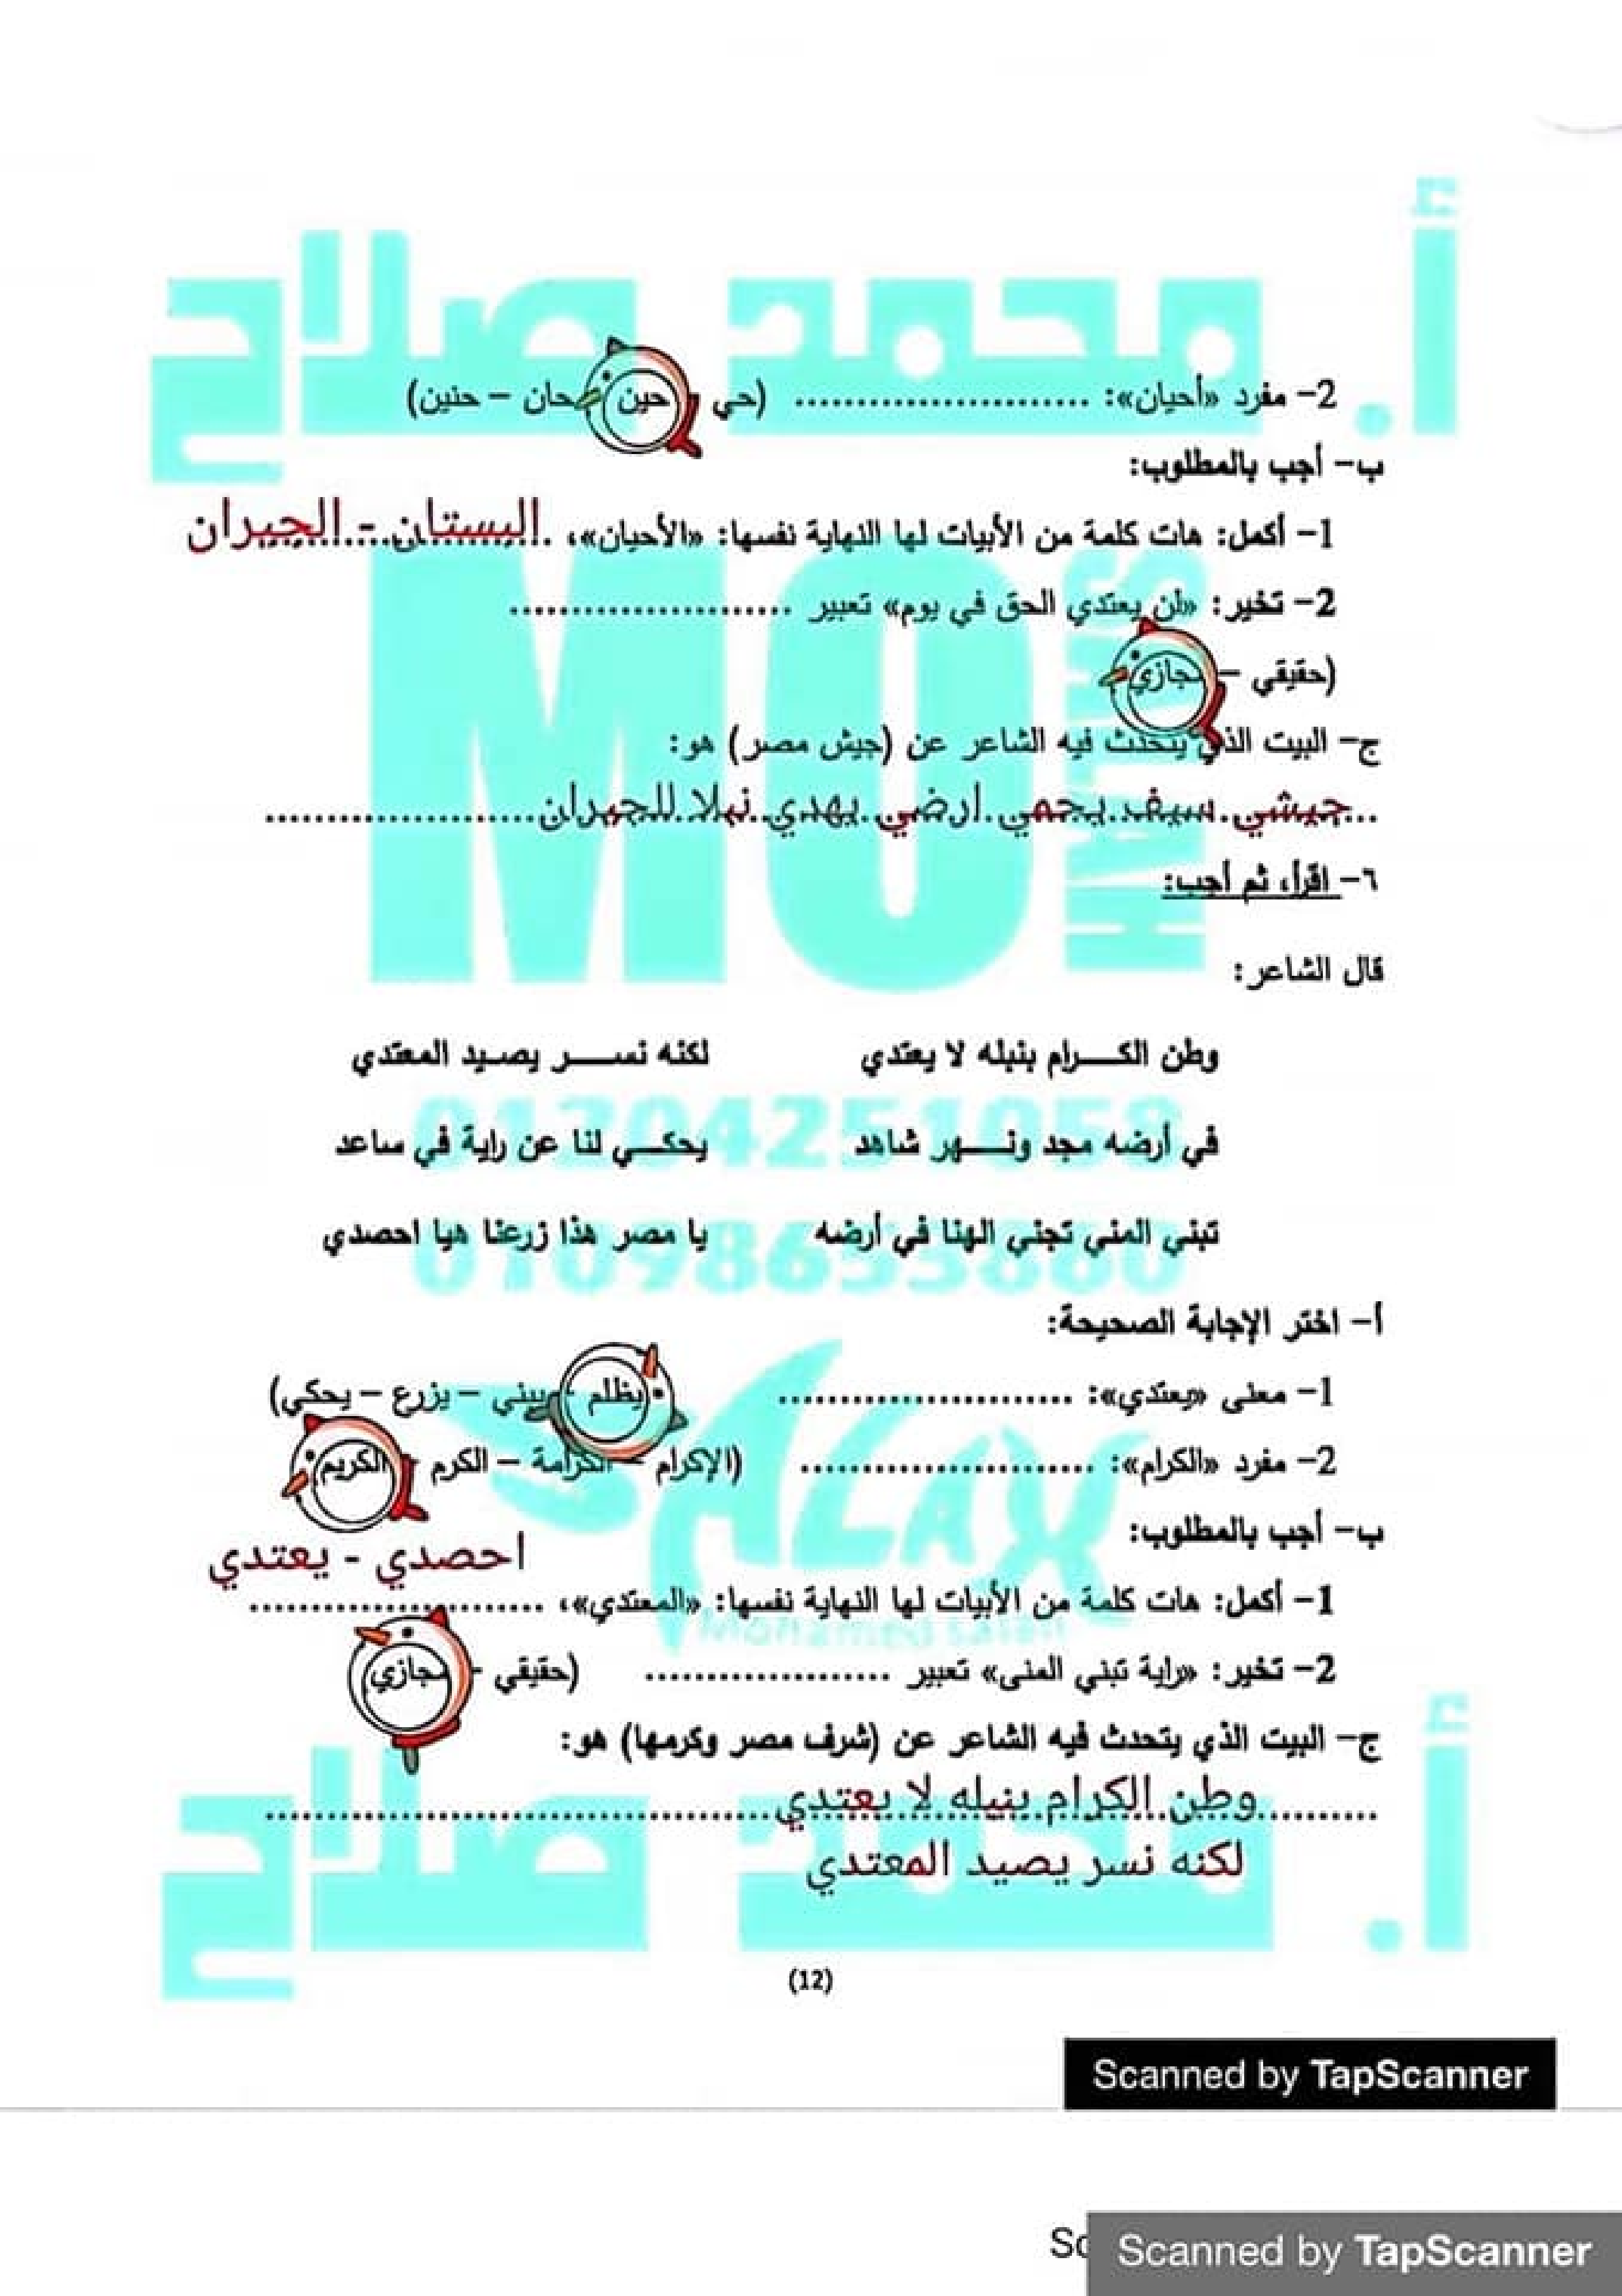 أ. محمد صلاح
2- مفرد «أحيان»: ........................ (حي – حين – حان – حنين)
ب- أجب بالمطلوب:
1- أكمل: هات كلمة من الأبيات لها النهاية نفسها: «الأحيان»، البستان - الجيران
2- تخير: «لن يعتدي الحق في يوم» تعبير .......................
(حقيقي – مجازي
ج- البيت الذي يتحدث فيه الشاعر عن (جيش مصر) هو:
جيشي سيف يحمي ارضي يهدي نيلا للجيران
MO
SALAH
٦- اقرأ، ثم أجب:
قال الشاعر:
وطن الكـــرام بنبله لا يعتدي لكنه نســـر يصـيد المعتدي
في أرضه مجد ونـــهر شاهد يحكـــي لنا عن راية في ساعد
تبني المني تجني الهنا في أرضه يا مصر هذا زرعنا هيا احصدي
أ- اختر الإجابة الصحيحة:
1- معنى «يعتدي»: ........................ يظلم – يبني – يزرع – يحكي)
2- مفرد «الكرام»: ........................ (الإكرام – الكرامة – الكرم – الكريم
ب- أجب بالمطلوب:
احصدي - يعتدي
1- أكمل: هات كلمة من الأبيات لها النهاية نفسها: «المعتدي»، ........................
Mohamed salah
2- تخير: «راية تبني المنى» تعبير .................... (حقيقي – مجازي
ج- البيت الذي يتحدث فيه الشاعر عن (شرف مصر وكرمها) هو:
وطن الكرام بنيله لا يعتدي
لكنه نسر يصيد المعتدي
أ. محمد صلاح
(12)
Scanned by TapScanner
Scanned by TapScanner